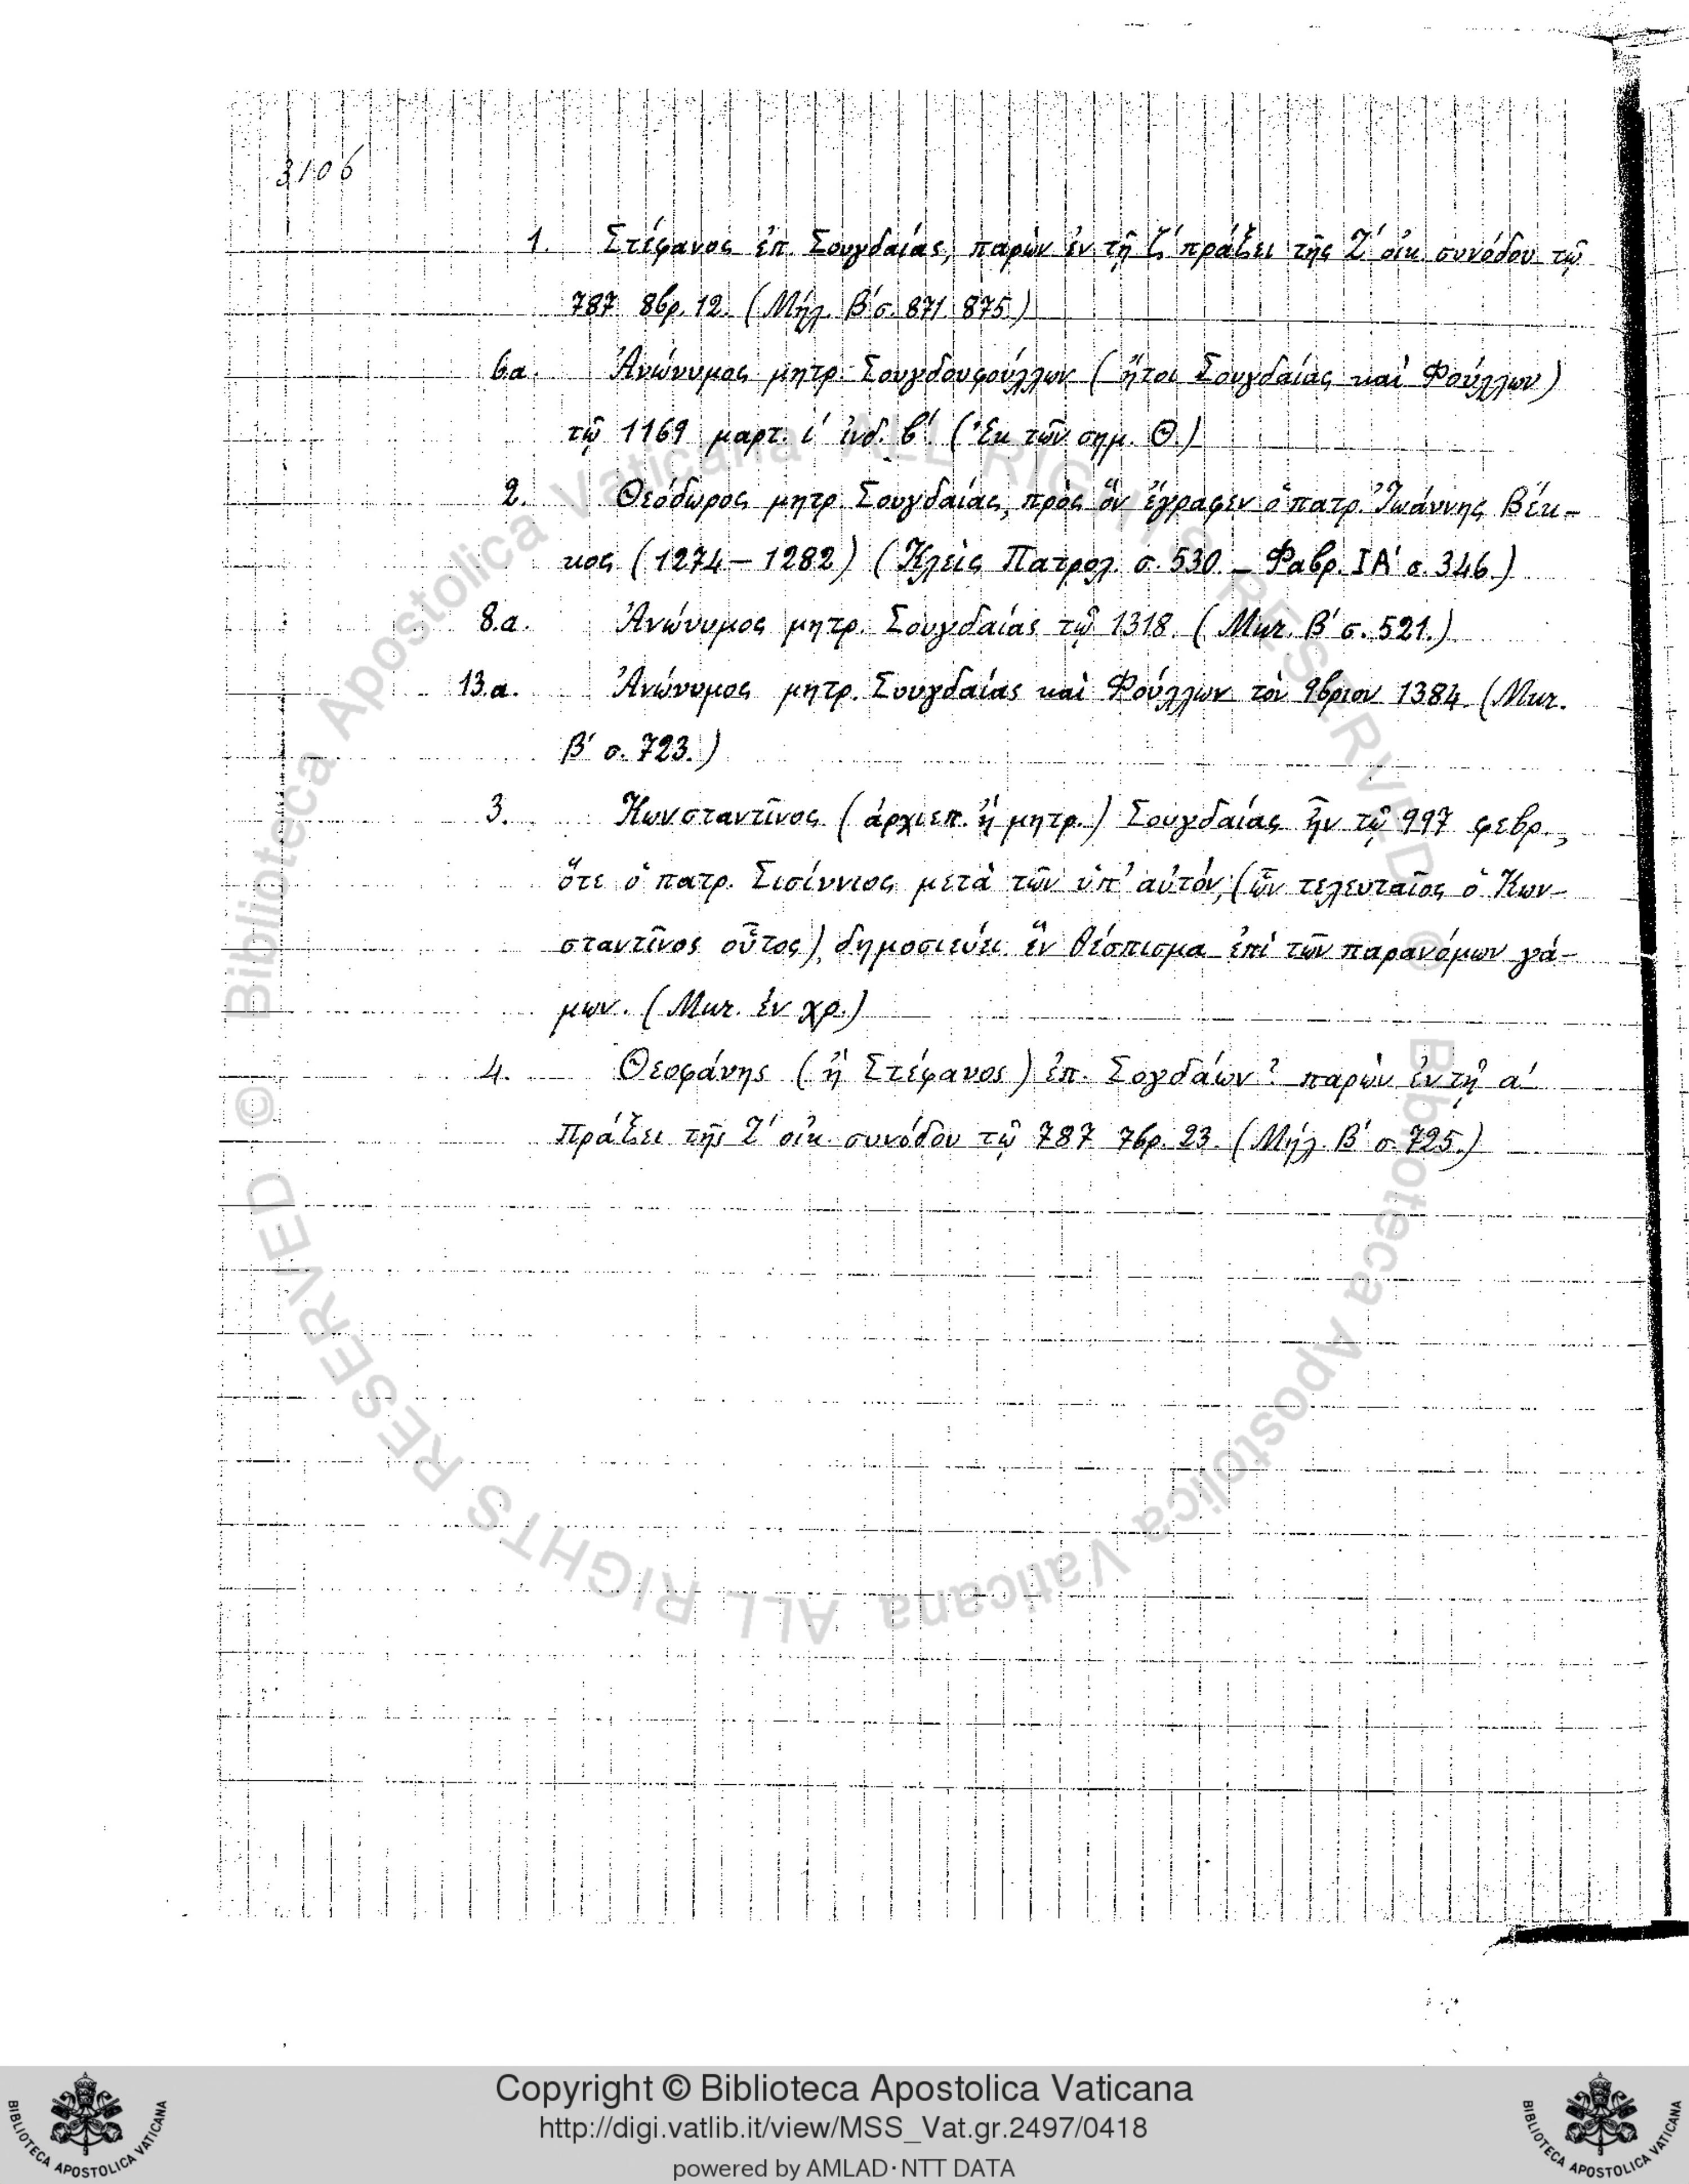 3106
1. Στέφανος ἐπ. Σουγδαίας, παρὼν ἐν τῇ ζ' πράξει τῆς Ζ' οἰκ. συνόδου τῷ
787 8βρ. 12. (Μήλ. Β' σ. 871. 875.)
6.α. Ἀνώνυμος μητρ. Σουγδουφούλλων (ἤτοι Σουγδαίας καὶ Φούλλων)
τῷ 1169 μαρτ. ι' ἰνδ. β'. (Ἐκ τῶν σημ. Θ.)
2. Θεόδωρος μητρ. Σουγδαίας, πρὸς ὃν ἔγραφεν ὁ πατρ. Ἰωάννης Βέκ-
κος (1274 – 1282) (Κλεὶς Πατρολ. σ. 530. – Φαβρ. ΙΑ' σ. 346.)
8.α. Ἀνώνυμος μητρ. Σουγδαίας τῷ 1318. (Μικ. Β' σ. 521.)
13.α. Ἀνώνυμος μητρ. Σουγδαίας καὶ Φούλλων τὸν 9βριον 1384. (Μικ.
Β' σ. 723.)
3. Κωνσταντῖνος (ἀρχιεπ. ἢ μητρ.) Σουγδαίας ἦν τῷ 997 φεβρ.,
ὅτε ὁ πατρ. Σισίννιος μετὰ τῶν ὑπ' αὐτόν, (ὧν τελευταῖος ὁ Κων-
σταντῖνος οὗτος), δημοσιεύει ἓν θέσπισμα ἐπὶ τῶν παρανόμων γά-
μων. (Μικ. ἐν χρ.)
4. Θεοφάνης (ἢ Στέφανος) ἐπ. Σογδάων? παρὼν ἐν τῇ α'
Πράξει τῆς Ζ' οἰκ. συνόδου τῷ 787 7βρ. 23. (Μήλ. Β' σ. 725.)
© Biblioteca Apostolica Vaticana ALL RIGHTS RESERVED
© Biblioteca Apostolica Vaticana ALL RIGHTS RESERVED
Copyright © Biblioteca Apostolica Vaticana
http://digi.vatlib.it/view/MSS_Vat.gr.2497/0418
powered by AMLAD·NTT DATA
BIBLIOTECA APOSTOLICA VATICANA
BIBLIOTECA APOSTOLICA VATICANA